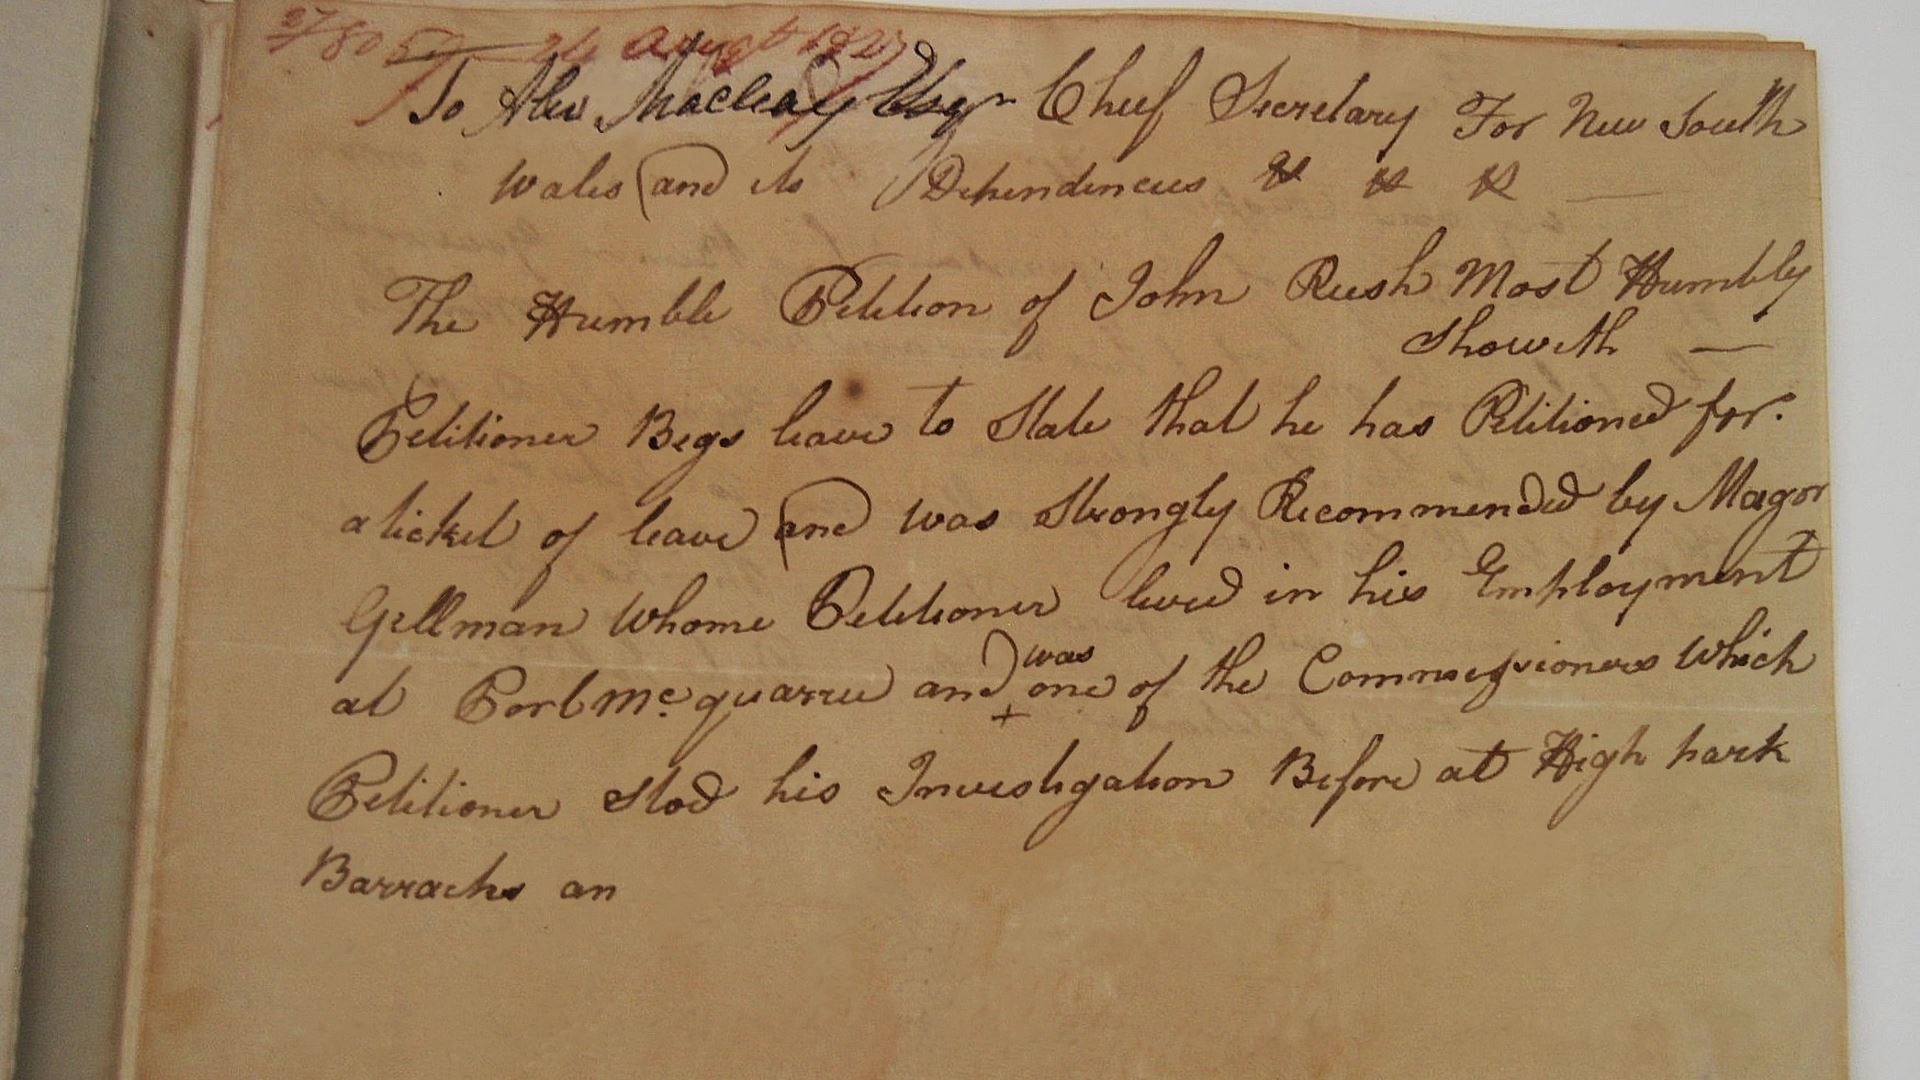 27/8054 24 August 1827
To Alex Macleay Esqr Chief Secretary For New South
Wales and its Dependencies & & &
The Humble Petition of John Rush Most Humbly
Showeth —
Petitioner Begs leave to State that he has Petitioned for.
a ticket of leave and was Strongly Recommended by Magor
Gillman Whome Petitioner lived in his Employment
at Port Mc.quarrie and was one of the Commissioners Which
Petitioner Stod his Investigation Before at High park
Barracks an